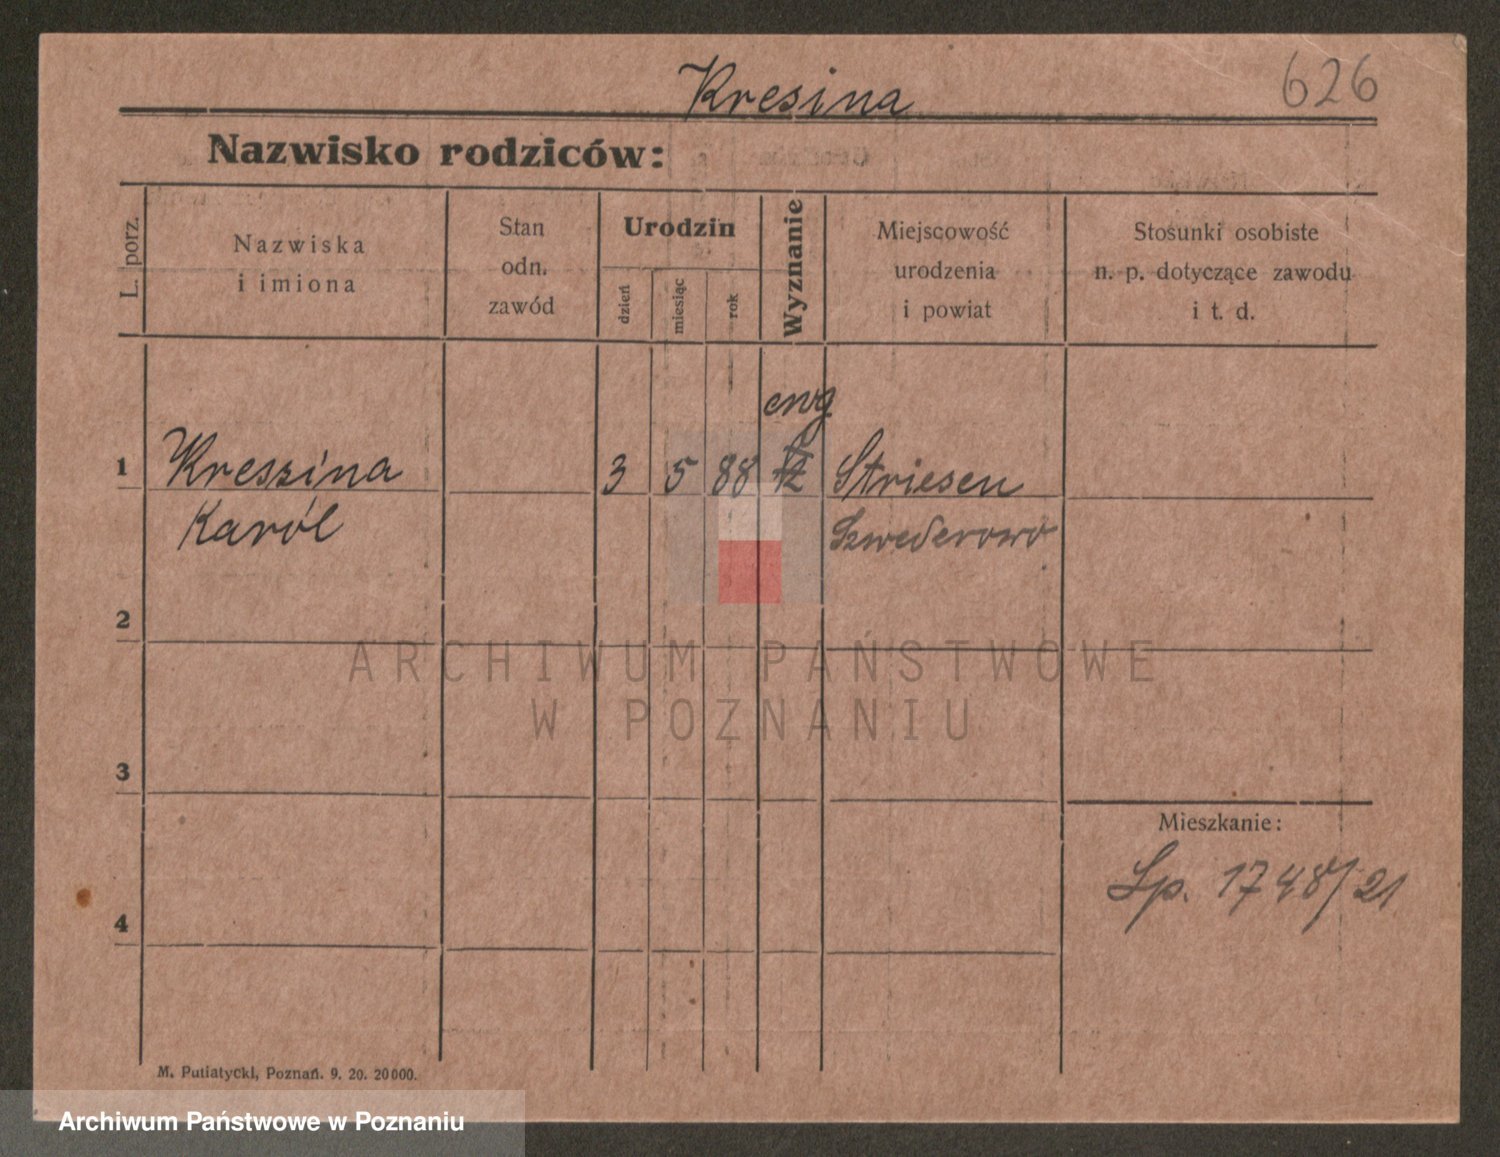 Kresina
626
Nazwisko rodziców:
L. porz.
Nazwiska
i imiona
Stan
odn.
zawód
Urodzin
dzień
miesiąc
rok
Wyznanie
Miejscowość
urodzenia
i powiat
Stosunki osobiste
n. p. dotyczące zawodu
i t. d.
ewg
1 Kressina 3 5 88 Striesen
Karól Szwederowo
2
ARCHIWUM PAŃSTWOWE
W POZNANIU
3
Mieszkanie:
Sp. 1748/21
4
M. Putiatycki, Poznań. 9. 20. 20000.
Archiwum Państwowe w Poznaniu